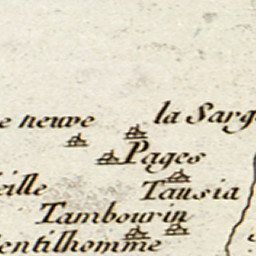 e neuve
la Sarg
Pages
eille
Tausia
Tambourin
entilhomme